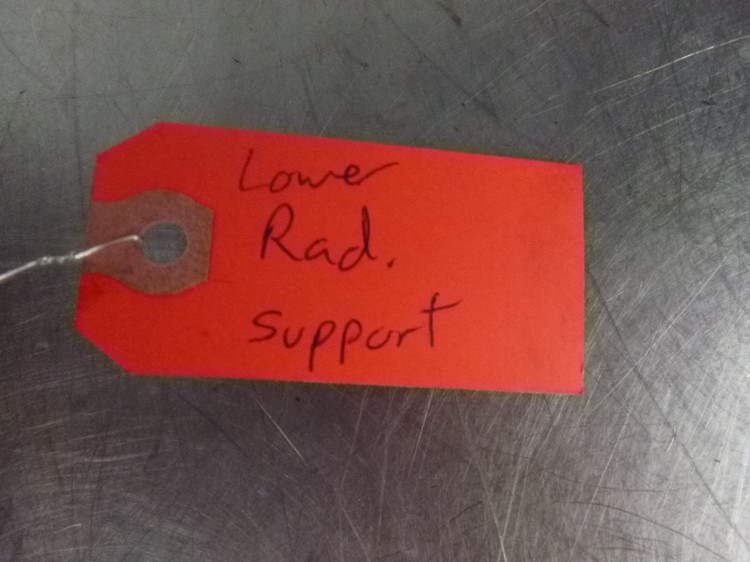 Lower
Rad.
Support